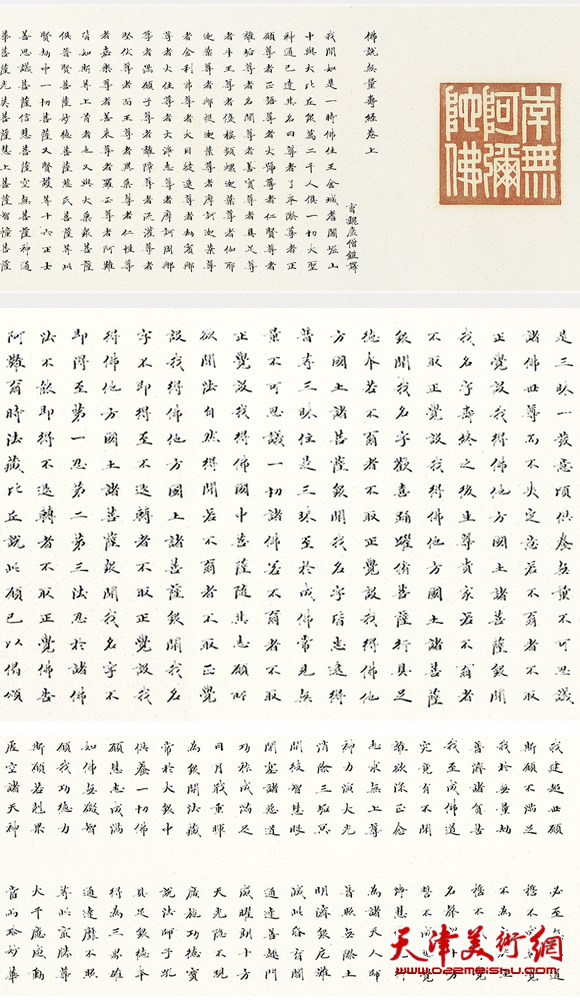 南無
阿彌
陀佛
佛說无量壽經卷上
曹魏康僧鎧譯
我聞如是一時佛住王舍城耆闍崛山
中與大比丘眾萬二千人俱一切大聖
神通已達其名曰尊者了本際尊者正
願尊者正語尊者大號尊者仁賢尊者
離垢尊者名聞尊者善實尊者具足尊
者牛王尊者優樓頻蠡迦葉尊者伽耶
迦葉尊者那提迦葉尊者摩訶迦葉尊
者舍利弗尊者大目犍連尊者劫賓那
尊者大住尊者大淨志尊者摩訶周那
尊者滿願子尊者離障尊者流灌尊者
堅伏尊者面王尊者異乘尊者仁性尊
者嘉樂尊者善來尊者羅云尊者阿難
皆如斯等上首者也又與大乘眾菩薩
俱普賢菩薩妙德菩薩慈氏菩薩等此
賢劫中一切菩薩又賢護等十六正士
善思議菩薩信慧菩薩空无菩薩神通
華菩薩光英菩薩慧上菩薩智幢菩薩
是三昧一發意頃供養无量不可思議
諸佛世尊而不失定意若不爾者不取
正覺設我得佛他方國土諸菩薩眾聞
我名字壽終之後生尊貴家若不爾者
不取正覺設我得佛他方國土諸菩薩
眾聞我名字歡喜踊躍修菩薩行具足
德本若不爾者不取正覺設我得佛他
方國土諸菩薩眾聞我名字皆悉逮得
普等三昧住是三昧至於成佛常見无
量不可思議一切諸佛若不爾者不取
正覺設我得佛國中菩薩隨其志願所
欲聞法自然得聞若不爾者不取正覺
設我得佛他方國土諸菩薩眾聞我名
字不即得至不退轉者不取正覺設我
得佛他方國土諸菩薩眾聞我名字不
即得至第一忍第二第三法忍於諸佛
法不能即得不退轉者不取正覺佛告
阿難爾時法藏比丘說此願已以偈頌
我建超世願 必至无上道
斯願不滿足 誓不成正覺
我於无量劫 不為大施主
普濟諸貧苦 誓不成正覺
我至成佛道 名聲超十方
究竟有不聞 誓不成正覺
離欲深正念 淨慧修梵行
志求无上尊 為諸天人師
神力演大光 普照无際土
消除三垢冥 明濟眾厄難
開彼智慧眼 滅此昏盲闇
閉塞諸惡道 通達善趣門
功祚成滿足 威曜朗十方
日月戢重暉 天光隱不現
為眾開法藏 廣施功德寶
常於大眾中 說法師子吼
供養一切佛 具足眾德本
願慧悉成滿 得為三界雄
如佛无礙智 通達靡不照
願我功德力 等此最勝尊
斯願若剋果 大千應感動
虛空諸天神 當雨珍妙華
天津美術網
www.022meishu.com